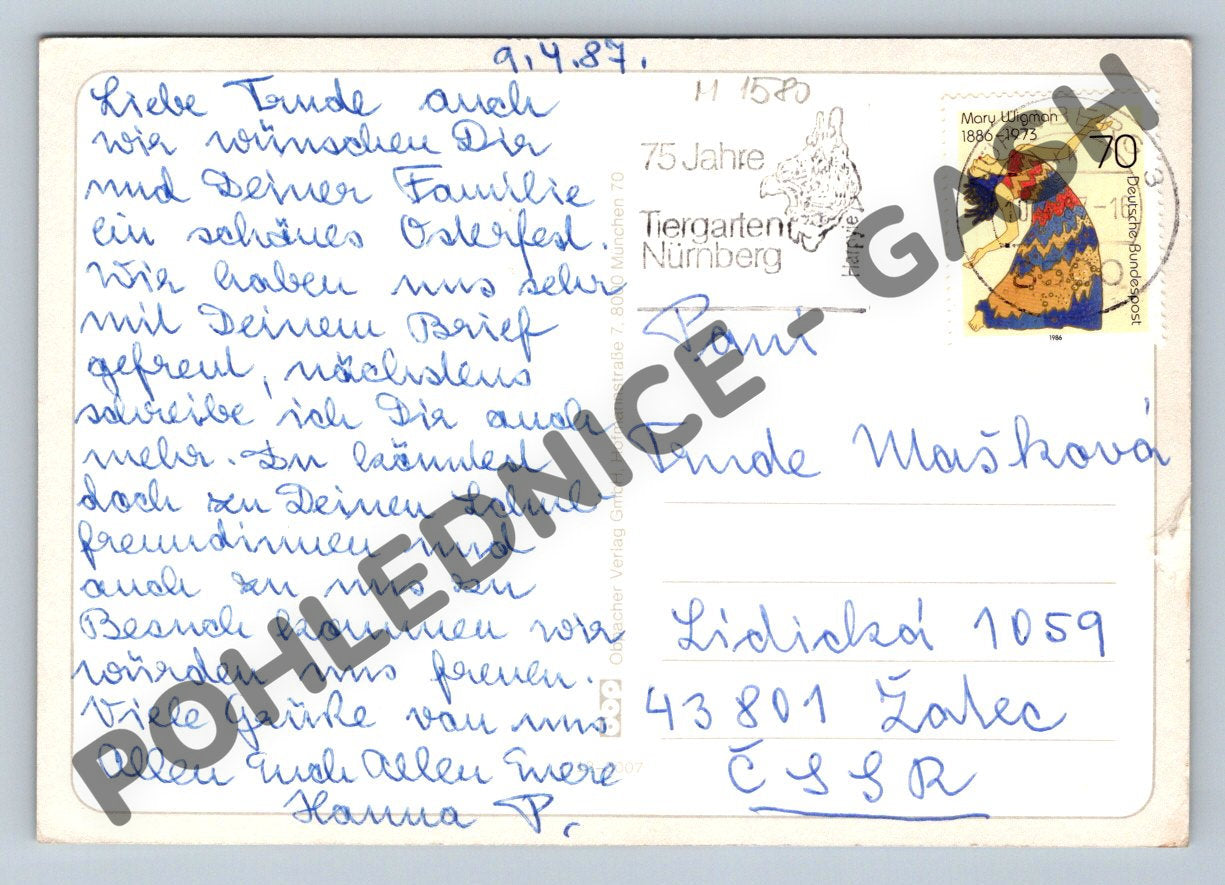 9.4.87.
Liebe Trude auch
wir wünschen Dir
und Deiner Familie
ein schönes Osterfest.
Wir haben uns sehr
mit Deinem Brief
gefreut, nächstens
schreibe ich Dir auch
mehr. Du könntest
doch zu Deinen Schul-
freundinnen und
auch zu uns zu
Besuch kommen wir
würden uns freuen.
Viele Grüße von uns
Allen Euch Allen Euere
Hanna P.
M 1580
75 Jahre
Tiergarten
Nürnberg
Harpyie
Mary Wigman
1886-1973
70
Deutsche Bundespost
1986
Paní
Trude Mašková
Lidická 1059
43801 Žatec
ČSSR
Verlag GmbH, Hofmannstraße 7, 8000 München 70
POHLEDNICE - GASH